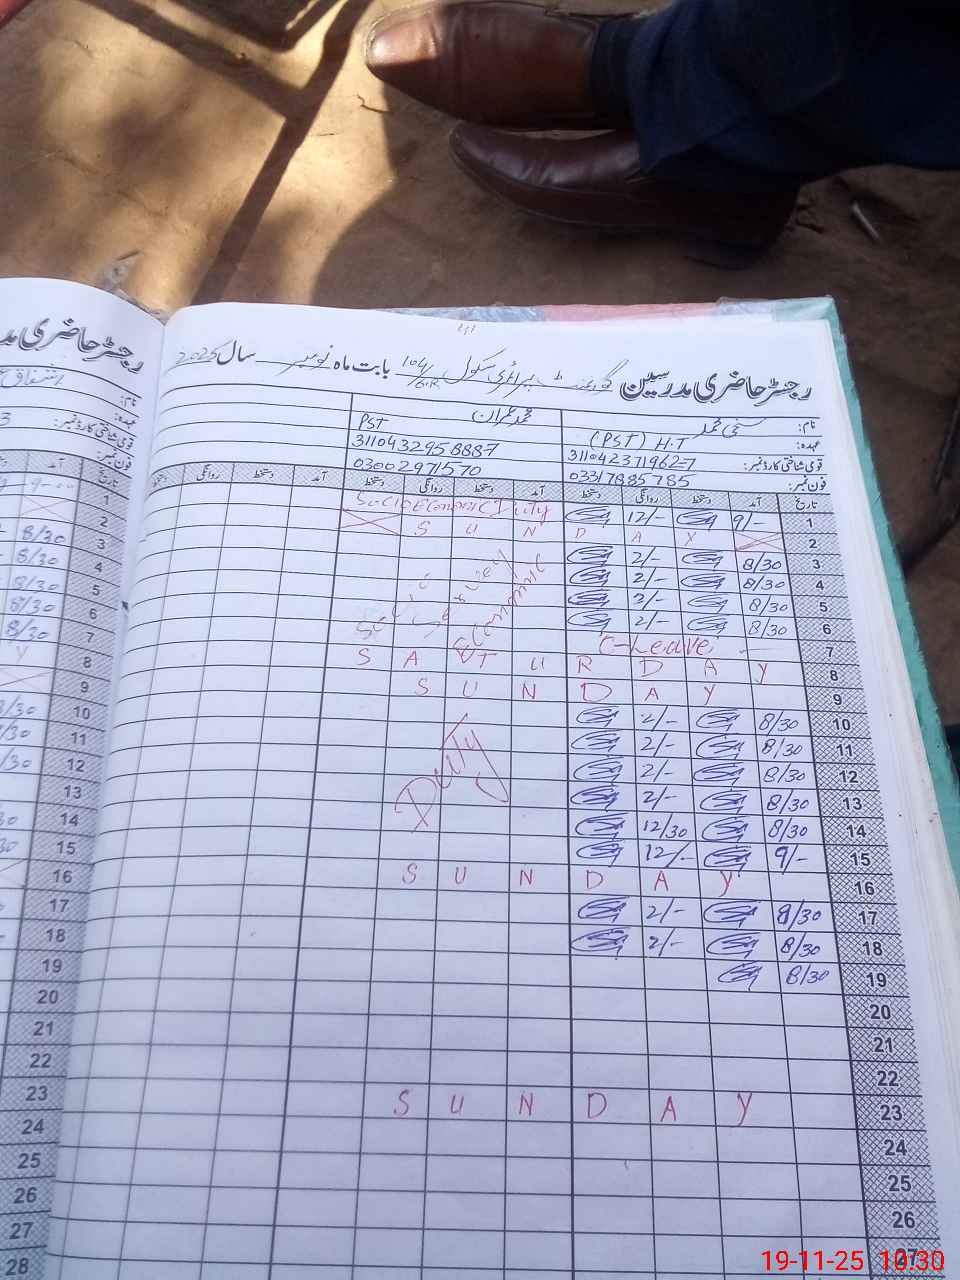 رجسٹر حاضری مدرسین گورنمنٹ پرائمری سکول 104/6.R بابت ماہ نومبر سال 2025
نام: سخی محمد محمد عمران
عہدہ: (PST) H.T PST
قومی شناختی کارڈ نمبر: 311042371962-7 3110432958887
فون نمبر: 03317885785 03002971570
تاریخ آمد دستخط روانگی دستخط آمد دستخط روانگی دستخط آمد دستخط روانگی دستخط
1 9/- 12/- Socio Economic Duty
2 S U N D A Y
3 8/30 2/-
4 8/30 2/-
5 8/30 2/-
6 8/30 2/-
Socio Economic Survey
7 C-Leave
8 S A T U R D A Y
9 S U N D A Y
10 8/30 2/-
11 8/30 2/-
12 8/30 2/-
Duty
13 8/30 2/-
14 8/30 12/30
15 9/- 12/-
16 S U N D A Y
17 8/30 2/-
18 8/30 2/-
19 8/30
20
21
22
23 S U N D A Y
24
25
26
27
رجسٹر حاضری
نام: اشفاق
عہدہ:
قومی شناختی کارڈ نمبر: 3
فون نمبر:
تاریخ آمد
1
2
3 8/30
4 8/30
5 8/30
6 8/30
7 8/30
8 Y
9
10 /30
11 /30
12 /30
13
14
15
16
17
18
19
20
21
22
23
24
25
26
27
28
19-11-25 10:30